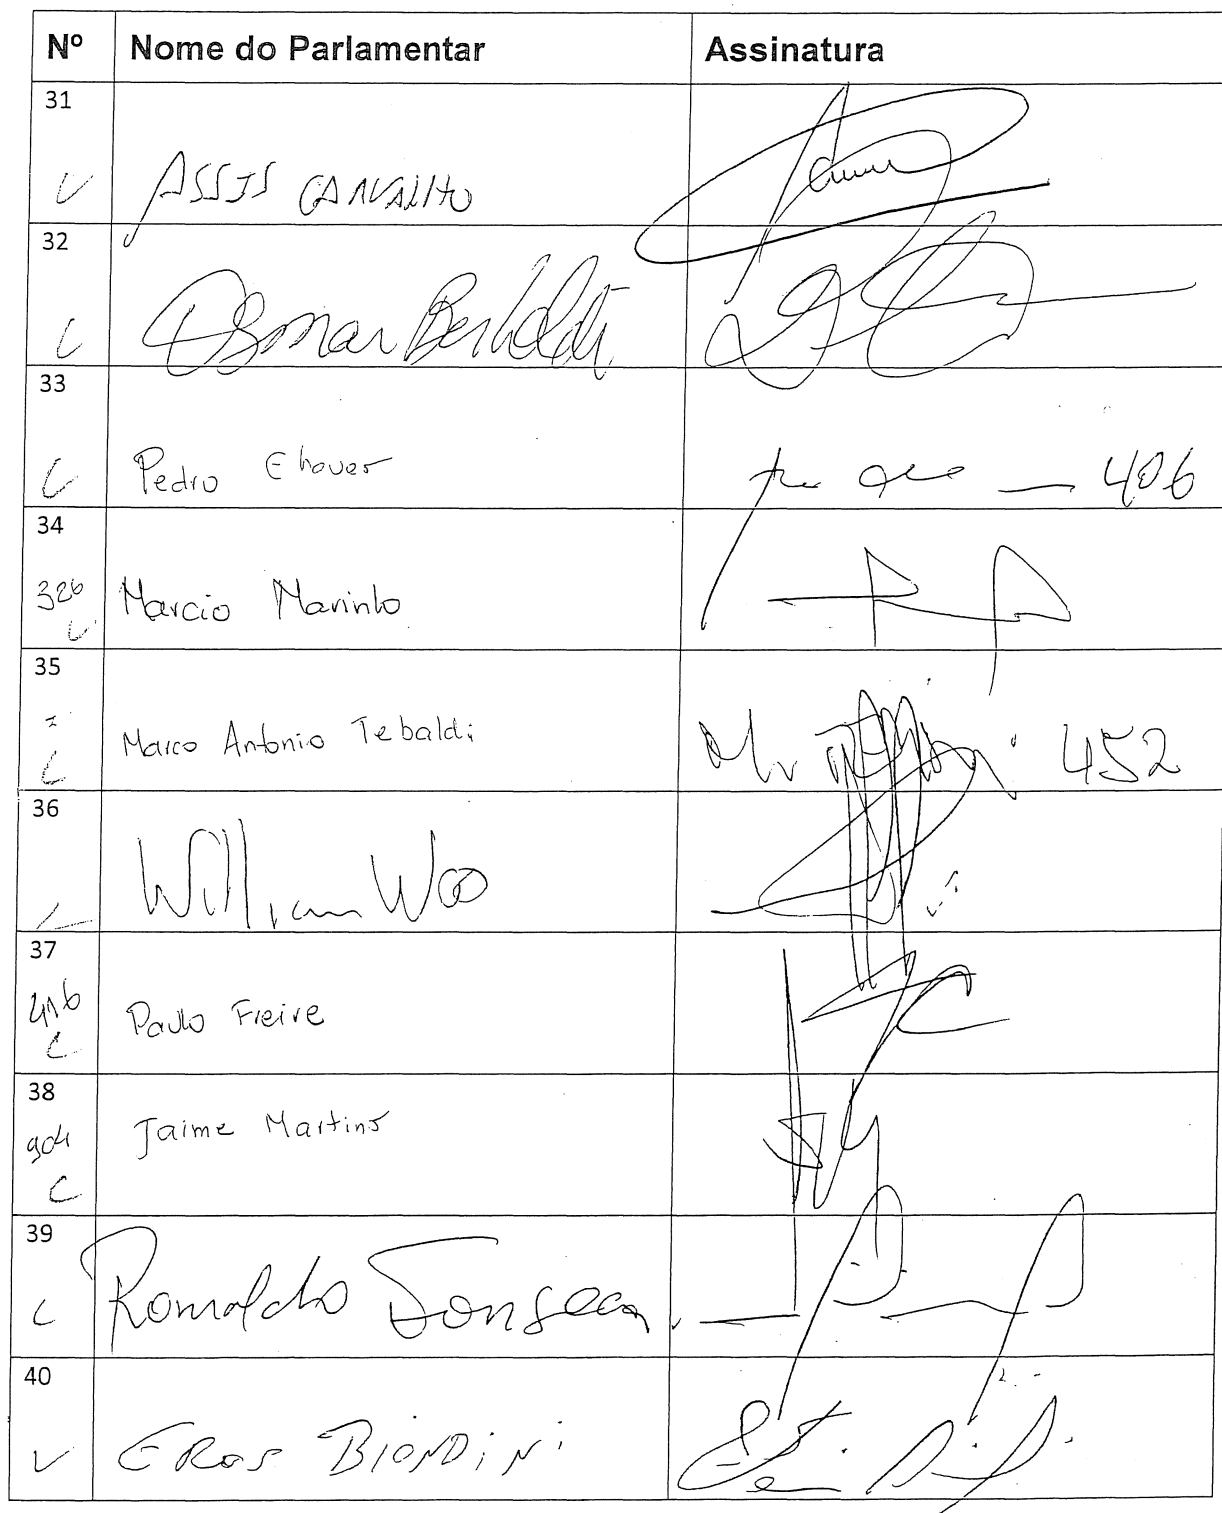 Nº Nome do Parlamentar Assinatura
31
ASSIS CARVALHO
32
Osmar Bertoldi
33
Pedro Chaves
406
34
326 Marcio Marinho
35
Marco Antonio Tebaldi
452
36
William Woo
37
416 Paulo Freire
38
904 Jaime Martins
39
Ronaldo Fonseca
40
EROS BIONDINI